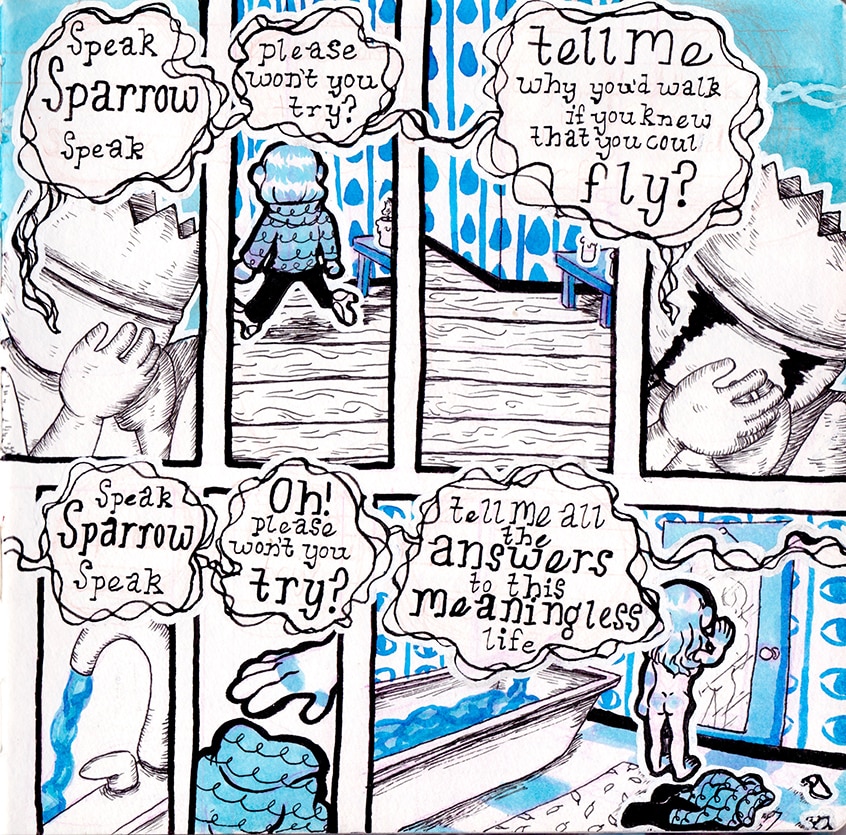 Speak
Sparrow
Speak
please
won't you
try?
tell me
why you'd walk
if you knew
that you coul
fly?
Speak
Sparrow
Speak
Oh!
please
won't you
try?
tell me all
the
answers
to this
meaningless
life